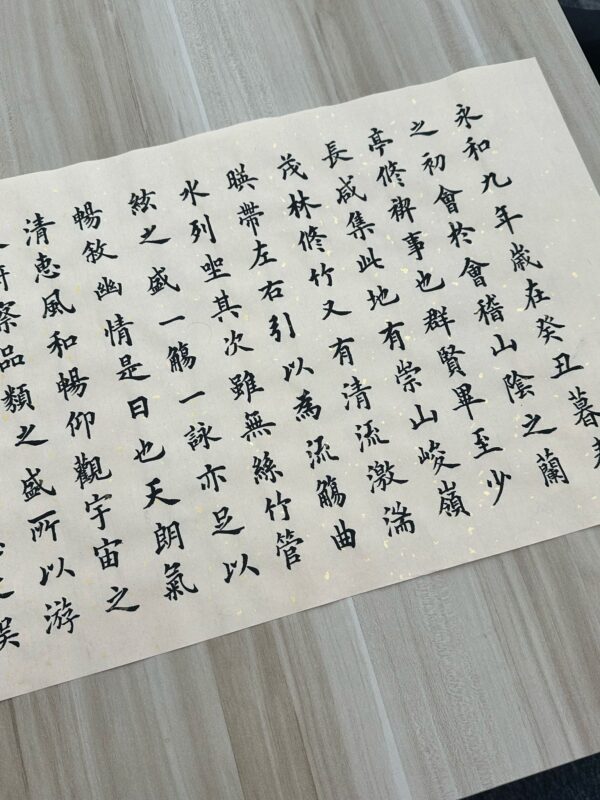 永和九年歲在癸丑暮春
之初會於會稽山陰之蘭
亭修禊事也群賢畢至少
長咸集此地有崇山峻嶺
茂林修竹又有清流激湍
暎帶左右引以為流觴曲
水列坐其次雖無絲竹管
絃之盛一觴一詠亦足以
暢敘幽情是日也天朗氣
清惠風和暢仰觀宇宙之
察品類之盛所以游
娛